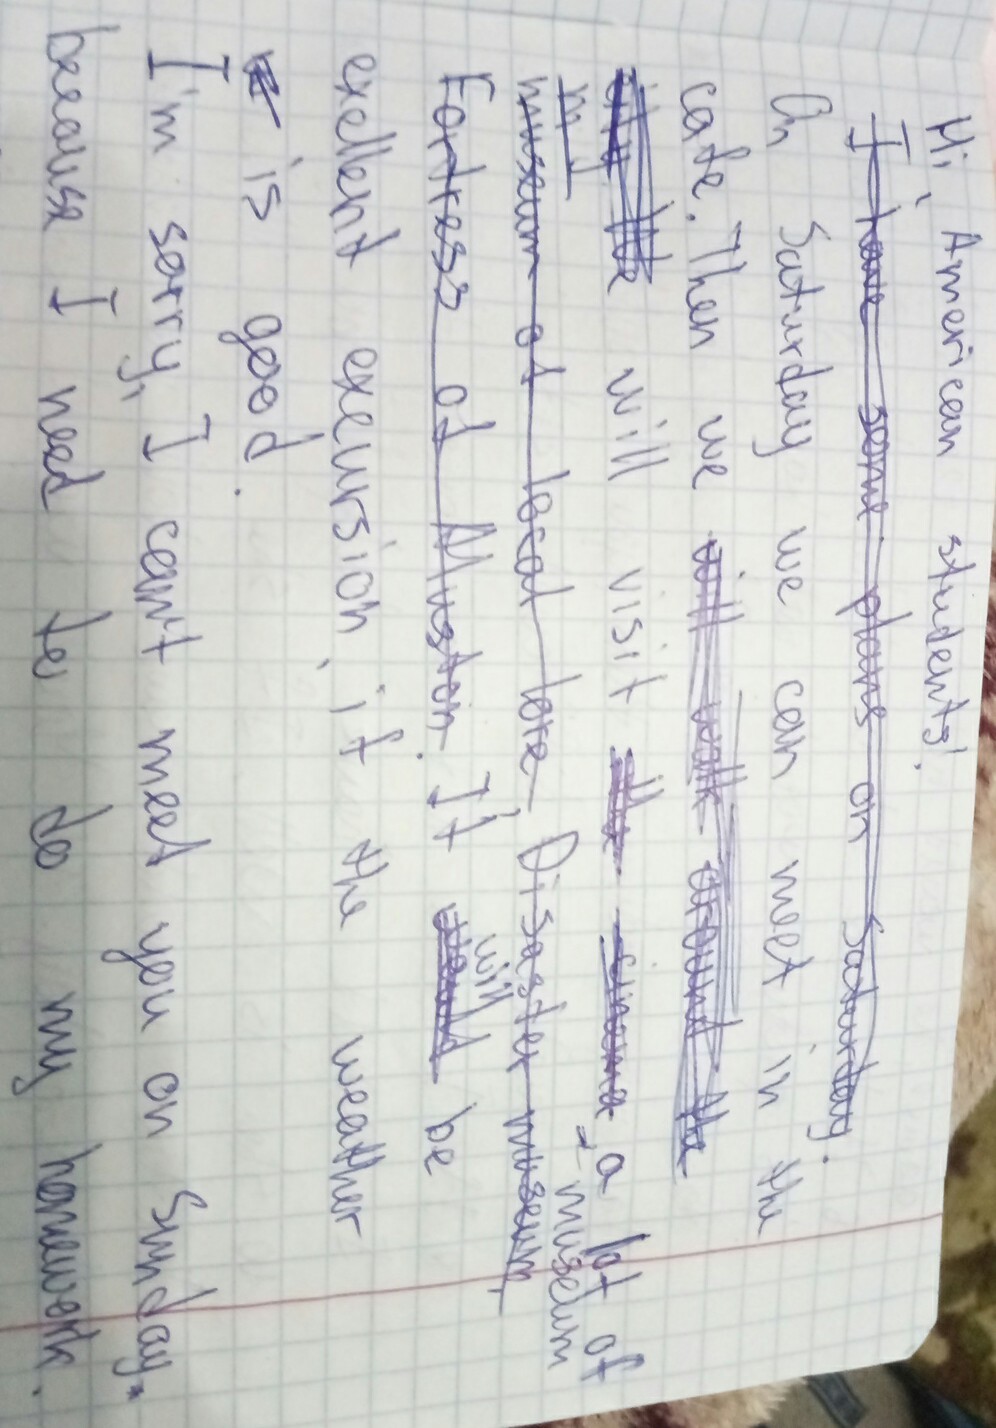 Hi, American students!
I have some plans on Saturday.
On Saturday we can meet in the
cafe. Then we will walk around the
will visit the cinema a lot of
museum
museum of local lore, Disaster museum,
Fortress of Aluston. It will be
exellent excursion, if the weather
is good.
I'm sorry, I can't meet you on Sunday,
because I need to do my homework.